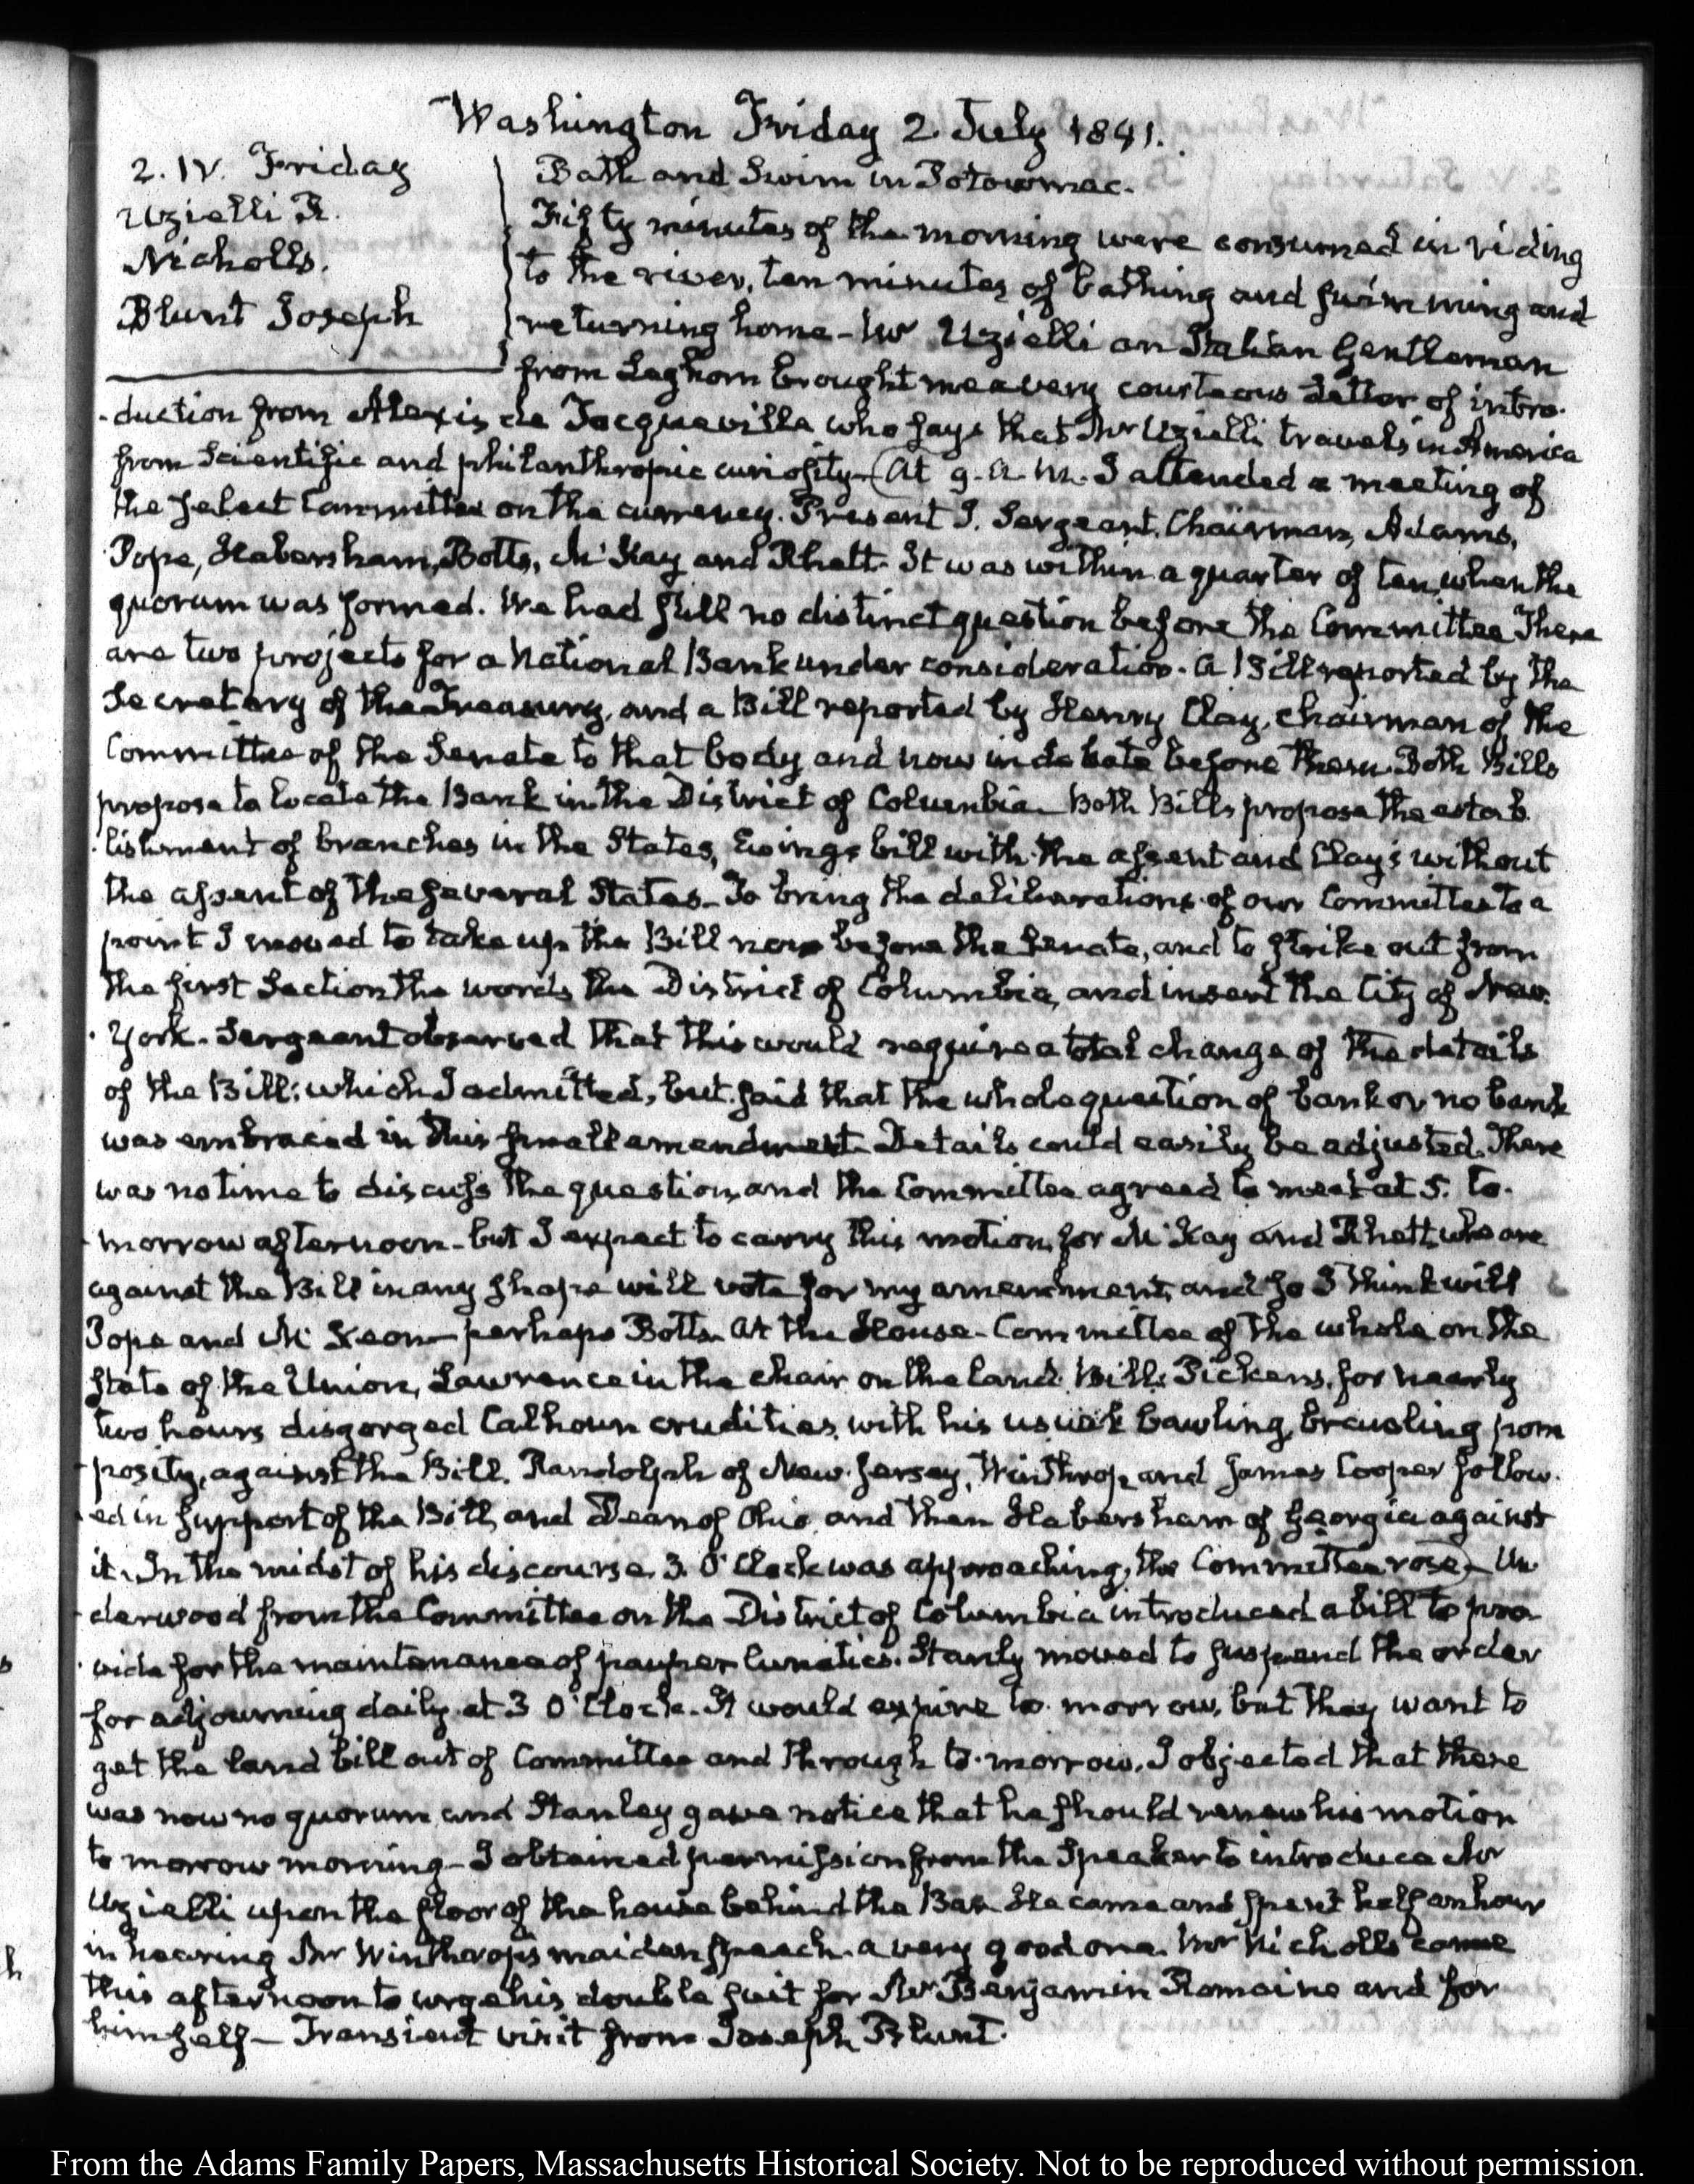 Washington Friday 2. July 1841.
2. IV. Friday
Uzielli R.
Nicholls.
Blunt Joseph
Bath and Swim in Potowmac.
Fifty minutes of the morning were consumed in riding
to the river, ten minutes of bathing and swimming and
returning home - Mr Uzielli an Italian Gentleman
from Leghorn brought me a very courteous Letter of intro-
-duction from Alexis de Tocqueville who says that Mr Uzielli travels in America
from Scientific and philanthropic curiosity - (At 9. A. M. I attended a meeting of
the select Committee on the currency. Present J. Sergeant, Chairman, Adams,
Pope, Habersham, Botts, McKay and Rhett. It was within a quarter of ten, when the
quorum was formed. We had still no distinct question before the Committee. There
are two projects for a National Bank under consideration. A Bill reported by the
Secretary of the Treasury, and a Bill reported by Henry Clay, chairman of the
Committee of the Senate to that body and now in debate before them. Both Bills
propose to locate the Bank in the District of Columbia. Both Bills propose the estab-
-lishment of branches in the States, Ewing's bill with the assent and Clay's without
the assent of the several States - To bring the deliberations of our Committee to a
point I moved to take up the Bill now before the Senate, and to strike out from
the first Section the words the District of Columbia, and insert the City of New-
-York. Sergeant observed that this would require a total change of the details
of the Bill; which I admitted, but said that the whole question of bank or no bank
was embraced in this small amendment. Details could easily be adjusted. There
was no time to discuss the question, and the Committee agreed to meet at 5. to-
-morrow afternoon - but I expect to carry this motion, for McKay and Rhett, who are
against the Bill in any shape will vote for my amendment, and so I think will
Pope and McKeon - perhaps Botts. At the House - Committee of the whole on the
state of the Union, Lawrence in the chair on the land Bill. Pickens, for nearly
two hours disgorged Calhoun crudities, with his usual bawling, brawling pom
-posity, against the Bill. Randolph of New-Jersey, Winthrop and James Cooper follow-
-ed in support of the Bill, and Dean of Ohio, and then Habersham of Georgia against
it. In the midst of his discourse, 3. O'Clock was approaching, the Committee rose) - Un-
-derwood from the Committee on the District of Columbia introduced a bill to pro-
-vide for the maintenance of pauper lunatics. Stanly moved to suspend the order
for adjourning daily at 3 O'Clock. It would expire to-morrow, but they want to
get the land bill out of Committee and through to-morrow. I objected that there
was now no quorum and Stanley gave notice that he should renew his motion
to morrow morning - I obtained permission from the Speaker to introduce Mr
Uzielli upon the floor of the house behind the Bar. He came and spent half an hour
in hearing Mr Winthrop's maiden speech. a very good one. Mr Nicholls came
this afternoon to urge his double suit for Mr Benjamin Romaine and for
himself - Transient visit from Joseph Blunt.
From the Adams Family Papers, Massachusetts Historical Society. Not to be reproduced without permission.